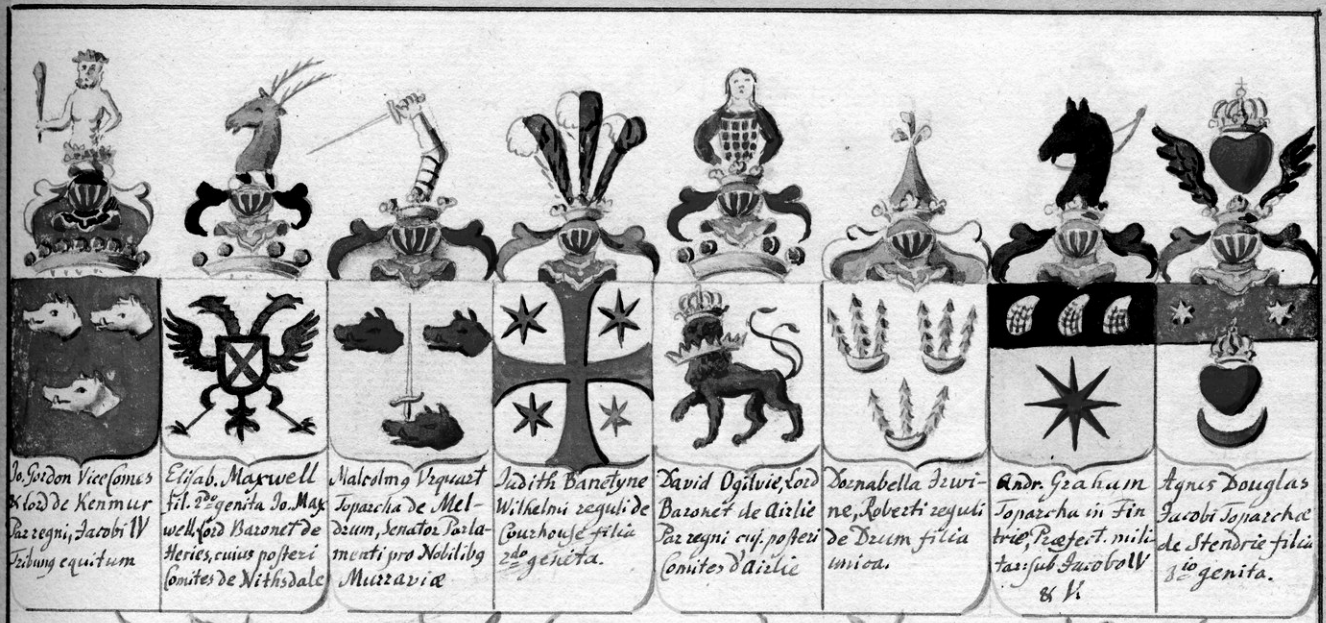 Jo. Gordon ViceComes
& Lord de Kenmur
Par regni, Jacobi IV
Tribung equitum
Elisab. Maxwell
fil. 2do genita Jo. Max
well, Lord Baronet de
Heries, cuius posteri
Comites de Nithsdale
Malcolmg Vrquart
Toparcha de Mel-
drum, Senator Parla-
menti pro Nobilibg
Murraviæ
Judith Banetyne
Wilhelmi reguli de
Courhouse filia
2do genita.
David Ogilvie, Lord
Baronet de Airlie
Par regni cuj. posteri
Comites d'Airlie
Dornabella Irwi-
ne, Roberti reguli
de Drum filia
unica.
Andr. Graham
Toparcha in Fin
trie, Præfect. mili
tar: sub Jacobo IV
& V.
Agnes Douglas
Jacobi Toparchæ
de Stendrie filia
3tio genita.